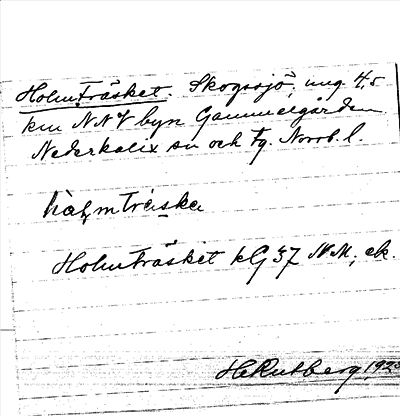 Holmträsket. Skogssjö, ung 4,5
km NNV byn Gammelgården
Nederkalix sn och tg. Norrb. l.
hålmtrėska
Holmträsket kG 37 N.M., ek.
H Rutberg, 192